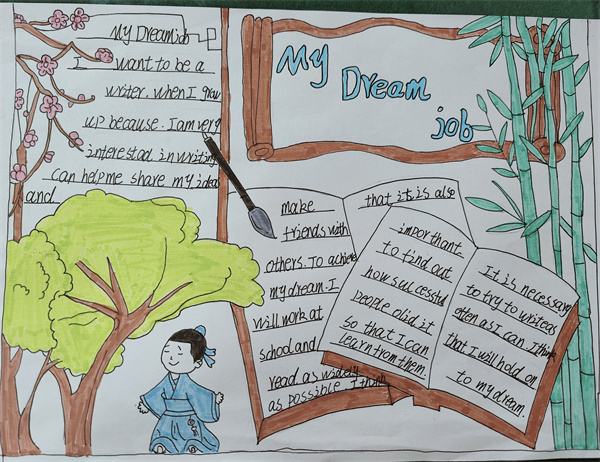 My Dream job
My Dreamjob
I want to be a
writer. when I grow
up because. I am very
interested in writing
can help me share my ideas
and
make
friends with
others. To achieve
my dream. I
will work at
school and
read as widely
as possible I think
that it is also
important
to find out
how successful
people did it
so that I can
learn from them.
It is necessary
to try to write as
often as I can I think
that I will hold on
to my dream.